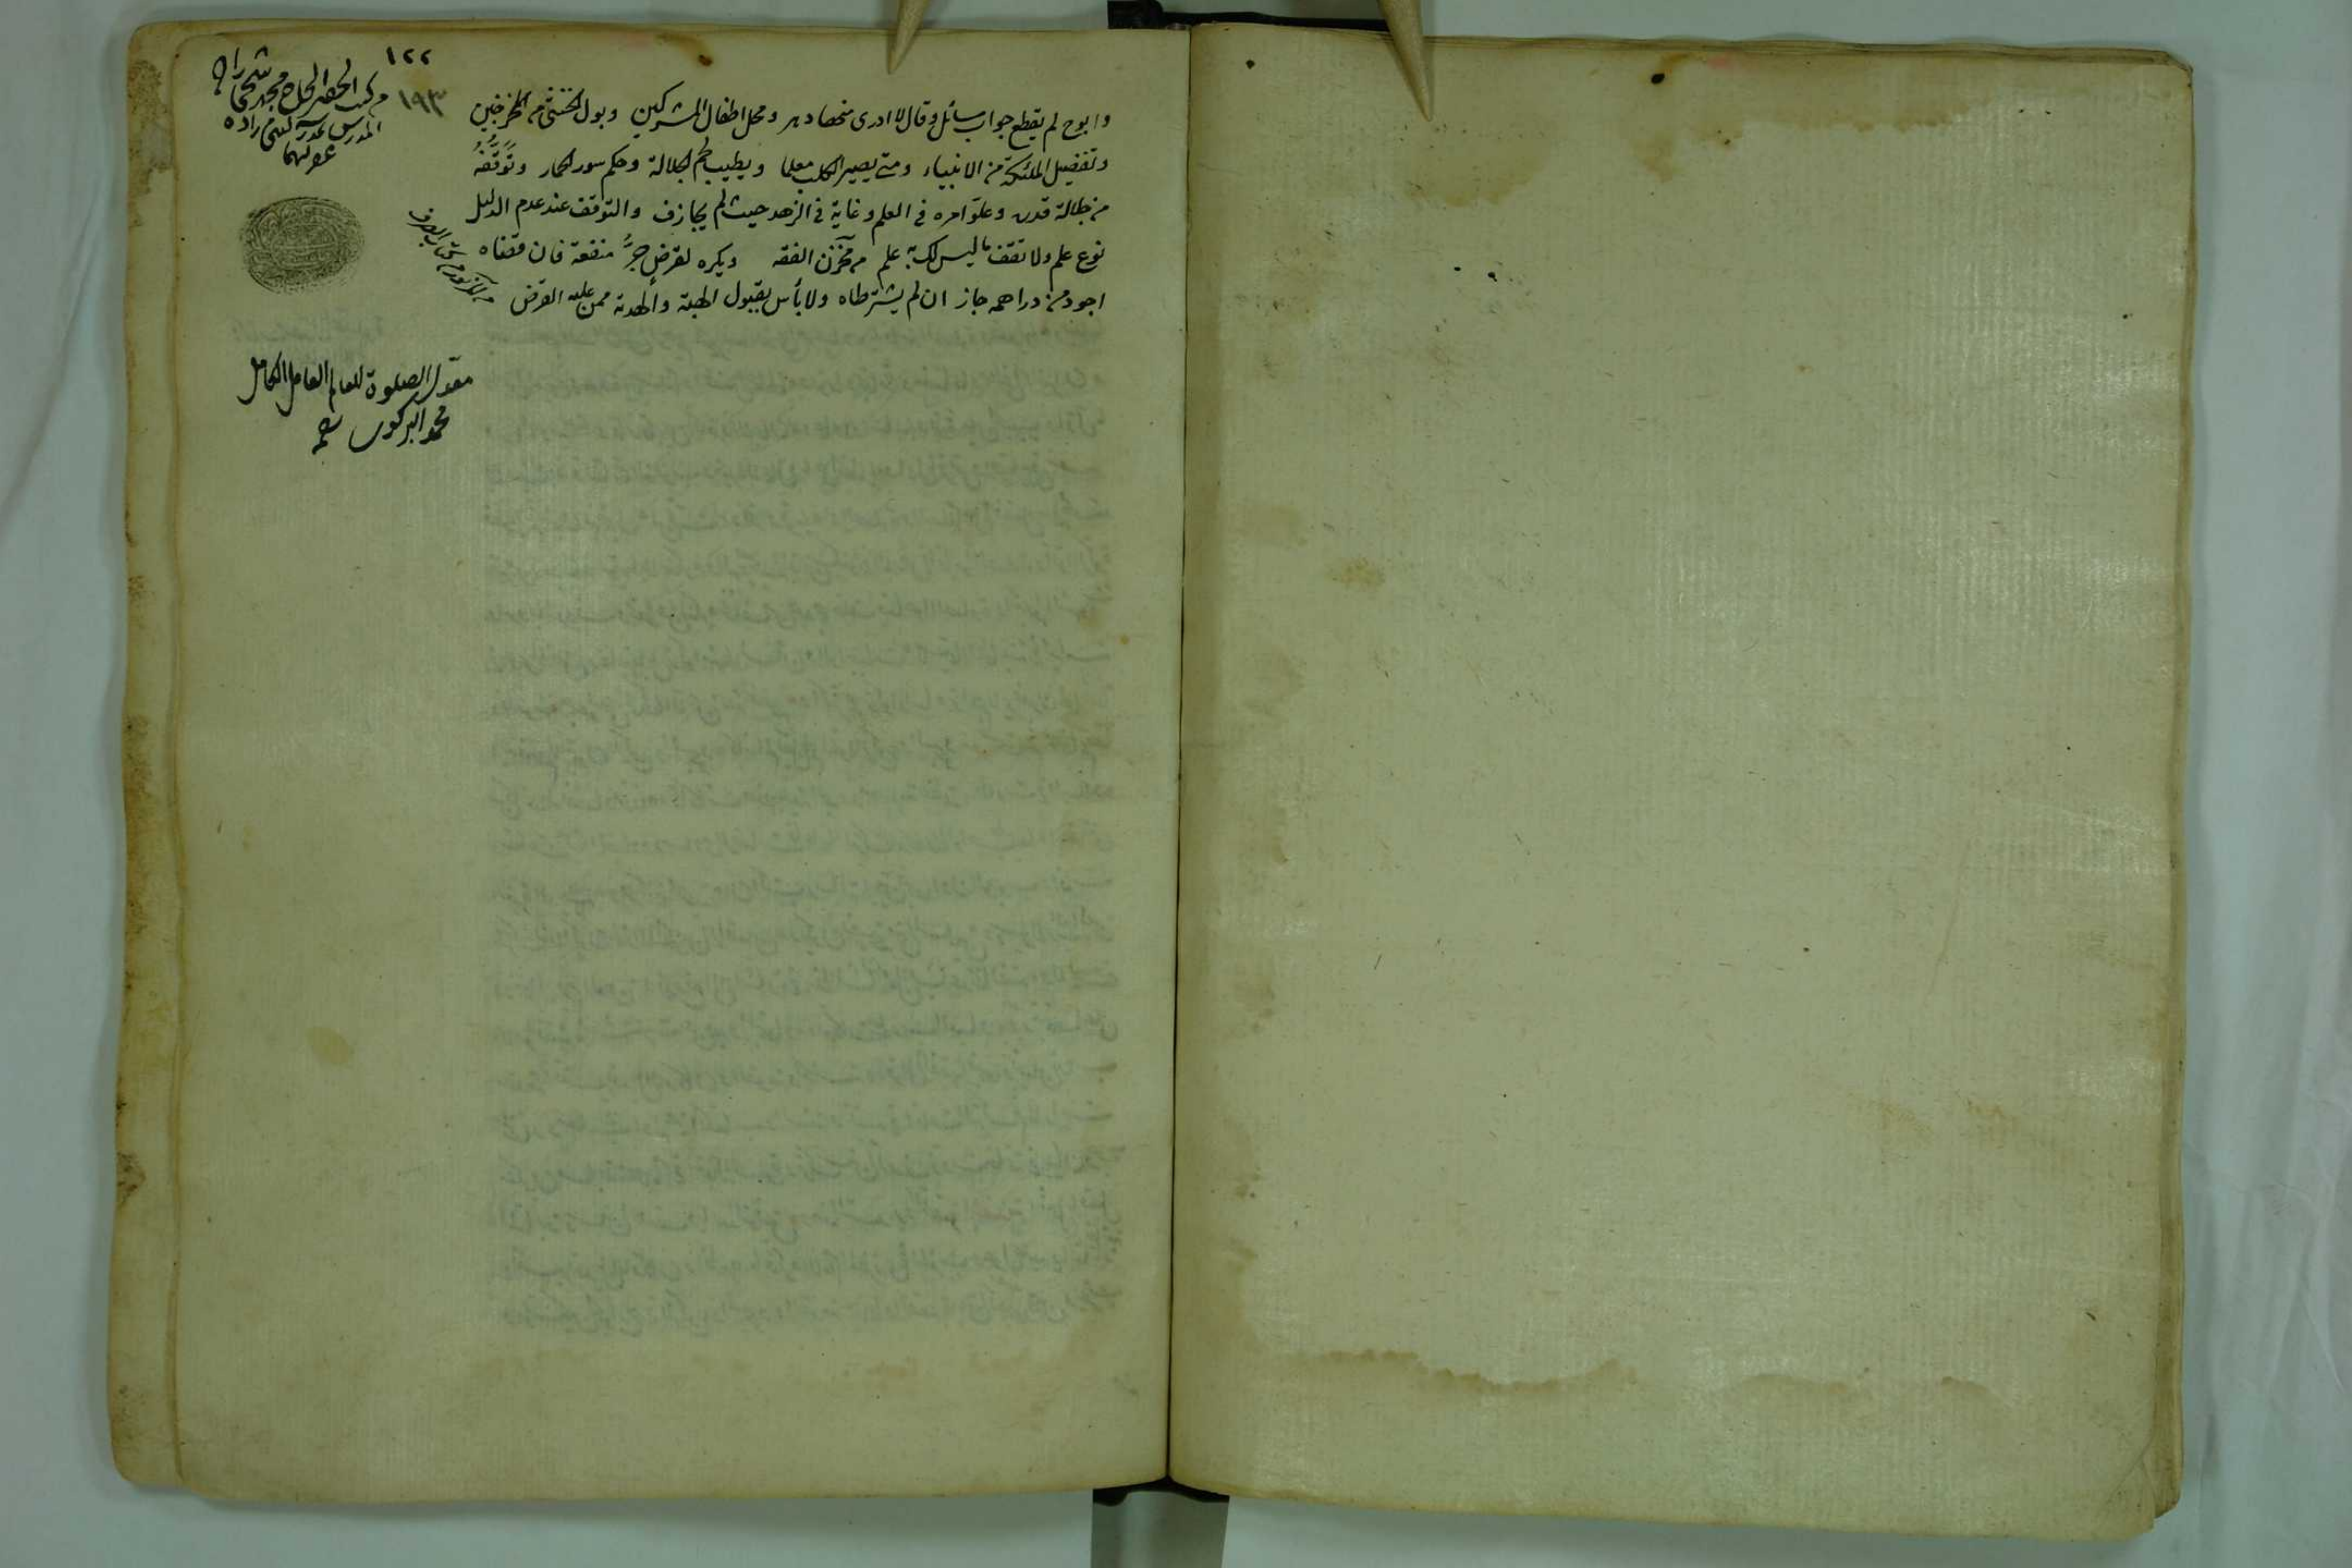 ١٢٢
١٩٣
من كتب الحاج محمد
المدرس بمدرسة
عفى عنهما
وابوح لم يقطع جواب مسائل وقال لا ادرى منها دهر ومحل اطفال المشركين وبول الخنثى من المخرجين
وتفضيل الملئكة من الانبياء ومتى يصير الكلب معلما ويطيب لحم الجلالة وحكم سور الحمار وتوقفه
من جلالة قدره وعلو امره فى العلم وغاية فى الزهد حيث لم يجازف والتوقف عند عدم الدليل
نوع علم ولا تقف ما ليس لك به علم من مخزن الفقه ويكره لقرض جر منفعة فان قضاه
اجود من دراهمه جاز ان لم يشترطاه ولا بأس بقبول الهبة والهدية ممن عليه القرض
معدل الصلوة للعالم العامل الكامل
محمد البركوى